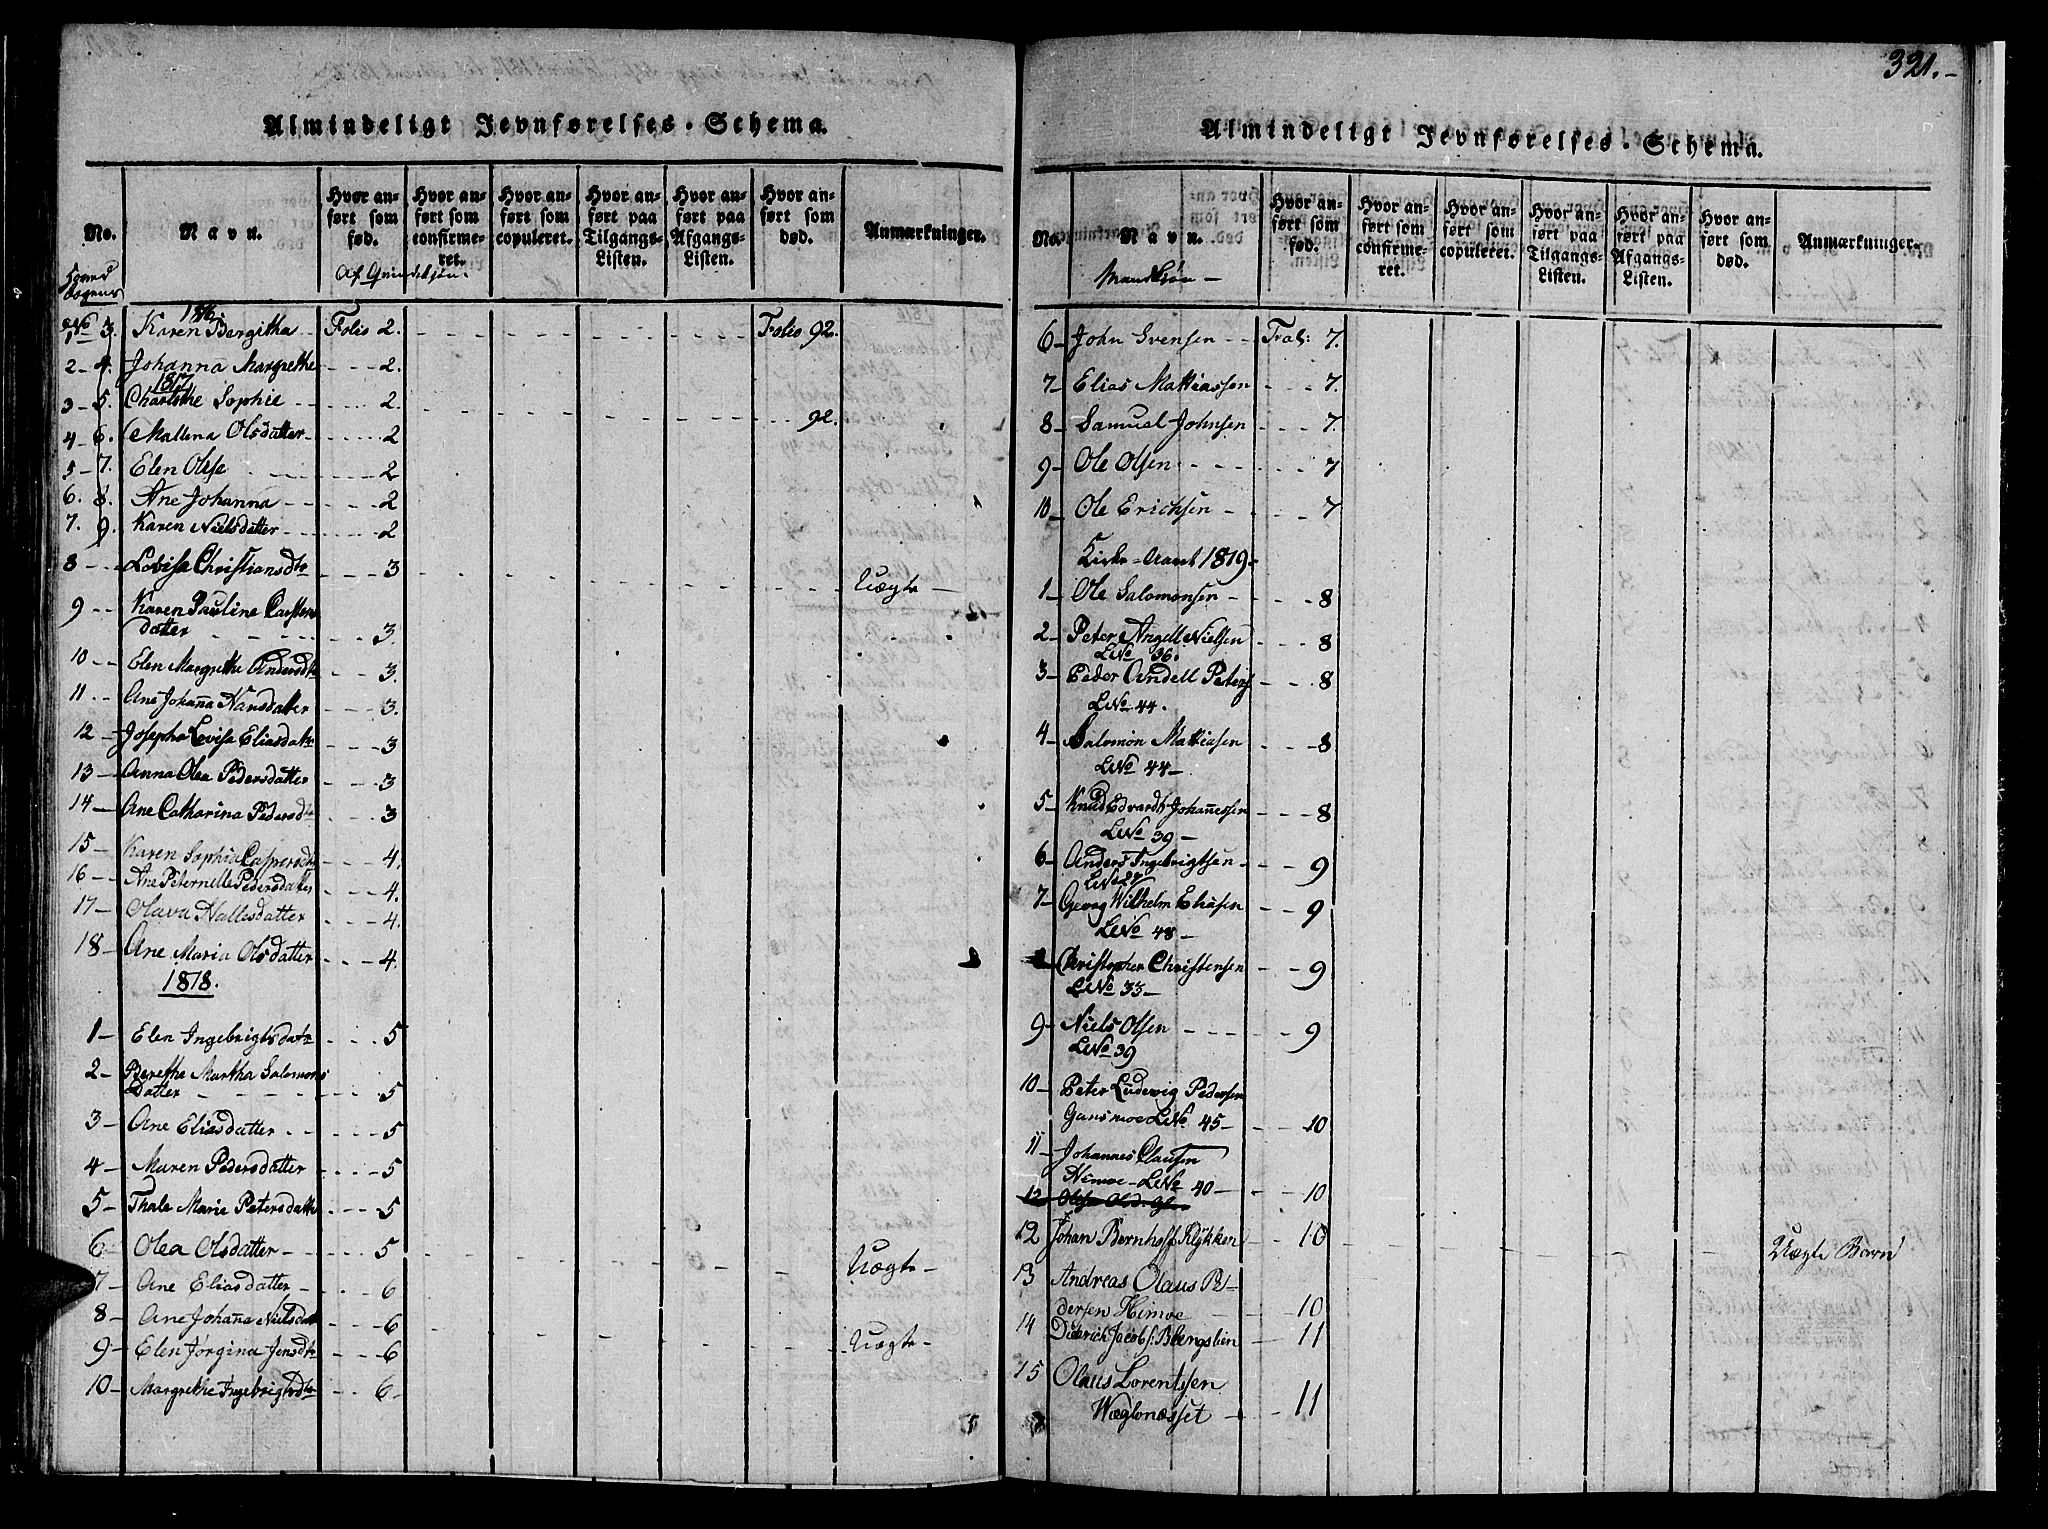 321.
Almindeligt Jevnførelses-Schema.
No.
Navn.
Hvor anført som fød.
Hvor anført som confirmeret.
Hvor anført som copuleret.
Hvor anført paa Tilgangs-Listen.
Hvor anført paa Afgangs-Listen.
Hvor anført som død.
Anmærkninger.
Af Qvindekjøn.
1816
No 1 3. Karen Bergitha Folio 2. Folio 92.
2 - 4. Johanna Margrethe 2.
1817
3 - 5. Charlothe Sophie 2.
4 - 6. Mallena Olsdatter 2 92.
5 - 7. Elen Olsse 2
6. 8. Ane Johanna 2
7. 9. Karen Nielsdatter 2
8 Lovisa Christiansdtr 3 Uægte
9 Karen Pauline Carstens
datter 3.
10 Elen Margrethe Andersdtr 3.
11 Ane Johaña Hansdatter 3.
12 Josepha Lovisa Eliasdatr 3
13 Anna Olea Pedersdatter 3
14 Ane Catharina Pedersdtr 3
15 Karen Sophia Caspersdtr 4.
16 Ane Peternelle Pedersdatter 4.
17 Olava Hallesdatter 4.
18 Ane Maria Olsdatter 4.
1818.
1 Elen Ingebrigtsdatr 5
2 Berethe Martha Salomons
Datter 5
3 Ane Eliasdatter 5
4 Maren Pedersdatter 5
5 Thale Marie Petersdatter 5
6 Olea Olsdatter 5 Uægte
7 Ane Eliasdatter 6
8 Ane Johaña Nielsdatr 6
9 Elen Jørgina Jensdtr 6 Uægte
10 Margrethe Ingebrigtsdtr 6
Almindeligt Jevnførelses-Schema.
No.
Navn.
Hvor anført som fød.
Hvor anført som confirmeret.
Hvor anført som copuleret.
Hvor anført paa Tilgangs-Listen.
Hvor anført paa Afgangs-Listen.
Hvor anført som død.
Anmærkninger.
Mandkjøn
6 John Svensen 7.
7 Elias Mathiassen 7.
8 Samuel Johnsen 7.
9 Ole Olsen 7
10 Ole Erichsen 7
Kirke-Aaret 1819
1 Ole Salomonsen 8
2 Peter Angell Nielsen 8
LNo 36.
3 Peder Andell Peters 8
LNo 44.
4 Salomon Mathiasen 8
LNo 44
5 Knud Edvardt Johañessen 8
LNo 39
6 Anders Ingebrigtsen 9
LNo 27
7 Georg Wilhelm Eliasen 9
LNo 48
8 Christopher Christensen 9
LNo 33
9 Niels Olsen 9
LNo 39
10 Peter Ludewig Pedersen
Gansmoe LNo 45 10
11 Johannes Clausen
Nimoe LNo 40 10
12 Johan Bernhoff Rykken 10 Uægte Barn
13 Andreas Olaus Pe-
dersen Himoe 10
14 Diderich Jacobs: Blengslien 11
15 Olaus Lorentssen
Wæglonæsset 11